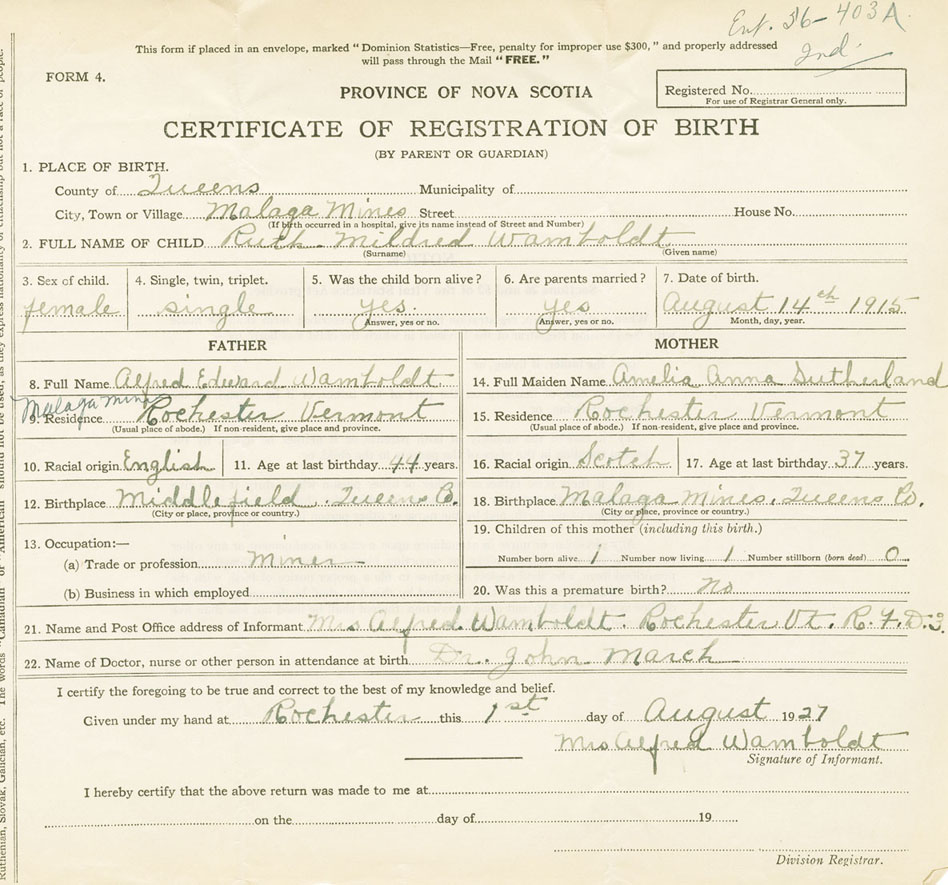 Ent. 36-403A.
Ind.
This form if placed in an envelope, marked "Dominion Statistics—Free, penalty for improper use $300," and properly addressed
will pass through the Mail "FREE."
FORM 4.
Registered No.
For use of Registrar General only.
PROVINCE OF NOVA SCOTIA
CERTIFICATE OF REGISTRATION OF BIRTH
(BY PARENT OR GUARDIAN)
1. PLACE OF BIRTH.
County of Queens Municipality of
City, Town or Village Malaga Mines Street House No.
(If birth occurred in a hospital, give its name instead of Street and Number)
2. FULL NAME OF CHILD Ruth Mildred Wamboldt
(Surname) (Given name)
3. Sex of child. 4. Single, twin, triplet. 5. Was the child born alive? 6. Are parents married? 7. Date of birth.
female single yes. yes August 14th 1915
Answer, yes or no. Answer, yes or no. Month, day, year.
FATHER MOTHER
8. Full Name Alfred Edward Wamboldt 14. Full Maiden Name Amelia Anna Sutherland
Malaga Mines
9. Residence Rochester Vermont 15. Residence Rochester Vermont
(Usual place of abode.) If non-resident, give place and province. (Usual place of abode.) If non-resident, give place and province.
10. Racial origin English 11. Age at last birthday 44 years. 16. Racial origin Scotch 17. Age at last birthday 37 years.
12. Birthplace Middlefield, Queens Co. 18. Birthplace Malaga Mines, Queens Co.
(City or place, province or country.) (City or place, province or country.)
13. Occupation:— 19. Children of this mother (including this birth.)
(a) Trade or profession Miner Number born alive 1 Number now living 1 Number stillborn (born dead) 0
(b) Business in which employed 20. Was this a premature birth? no
21. Name and Post Office address of Informant Mrs Alfred Wamboldt. Rochester Vt. R.F.D.
22. Name of Doctor, nurse or other person in attendance at birth Dr. John March
I certify the foregoing to be true and correct to the best of my knowledge and belief.
Given under my hand at Rochester this 1st day of August 1927
Mrs Alfred Wamboldt
Signature of Informant.
I hereby certify that the above return was made to me at
on the day of 19
Division Registrar.